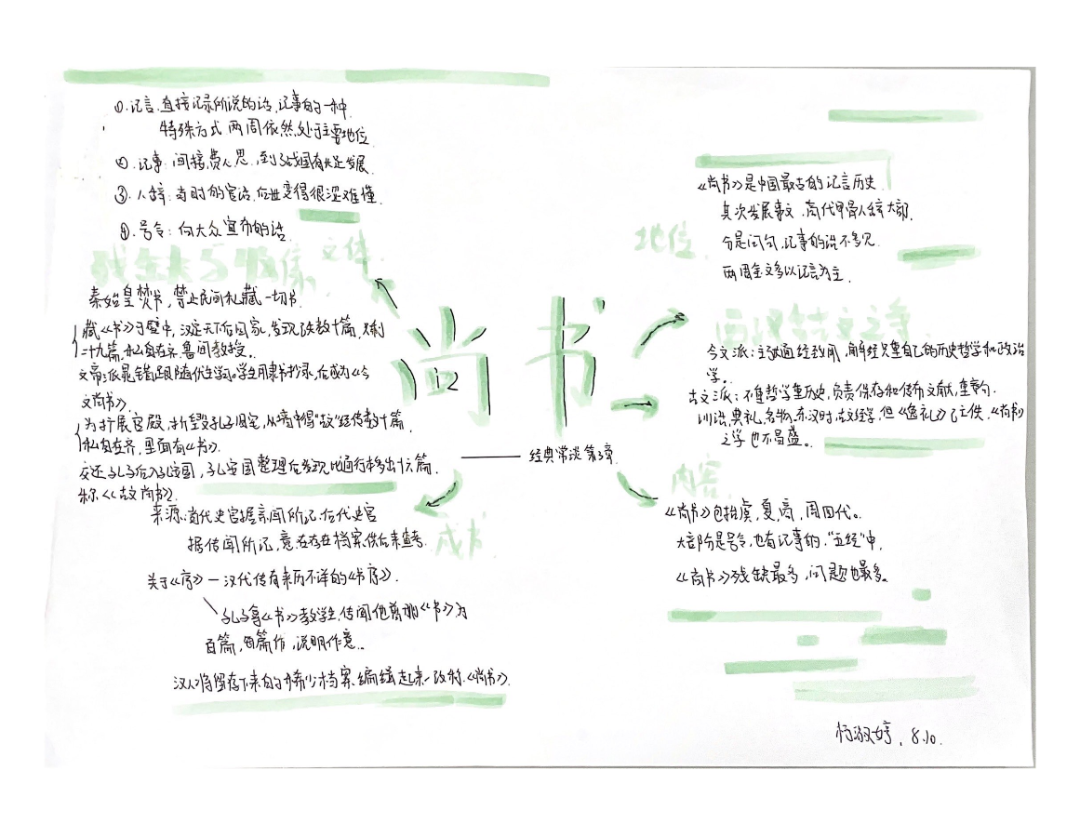 ①.记言.直接记录所说的话,记事的一种
特殊方式.两周依然处于主要地位.
②.记事:间接,费人思,到战国有长足发展
③.人辞:当时的官话,后世变得很深难懂.
④.号令:向大众宣布的话.
文体
秦始皇焚书,禁止民间私藏一切书
藏《书》于壁中,汉定天下后回家,发现缺数十篇,剩
二十九篇,私自在齐.鲁间教授。
文帝派晁错跟随伏生学习。学生用隶书抄录,后成为《今
文尚书》.
为扩展宫殿,拆毁孔子旧宅,从墙中得"古文"经传数十篇
里面有《书》.
交还孔子后人孔安国,孔安国整理后发现比通行本多出十六篇
称《古文尚书》.
尚书
经典常谈第3章
地位
《尚书》是中国最古的记言历史.
其次发展事文.商代甲骨人辞大部
分是问句,记事的辞不多见.
两周金文多以记言为主.
今文派:主张通经致用,解经只重自己的历史哲学和政治
学。
古文派:不重哲学重历史,负责保存和传布文献,重章句.
训诂,典礼,名物.东汉时,古文经学,但《逸礼》已亡佚.《尚书》
之学也不昌盛。
内容
《尚书》包括虞,夏,商,周四代。
大部分是号令,也有记事的."五经"中,
《尚书》残缺最多,问题也最多。
成书
来源:当代史官据亲闻所记.后代史官
据传闻所记,意在存在档案,供后来查考.
关于《序》—汉代传有来历不详的《书序》.
孔子拿《书》教学生,传闻他剪裁《书》为
百篇,每篇作,说明作意.
汉人将留存下来的稀少档案.编辑起来.改称.《尚书》.
8.10.